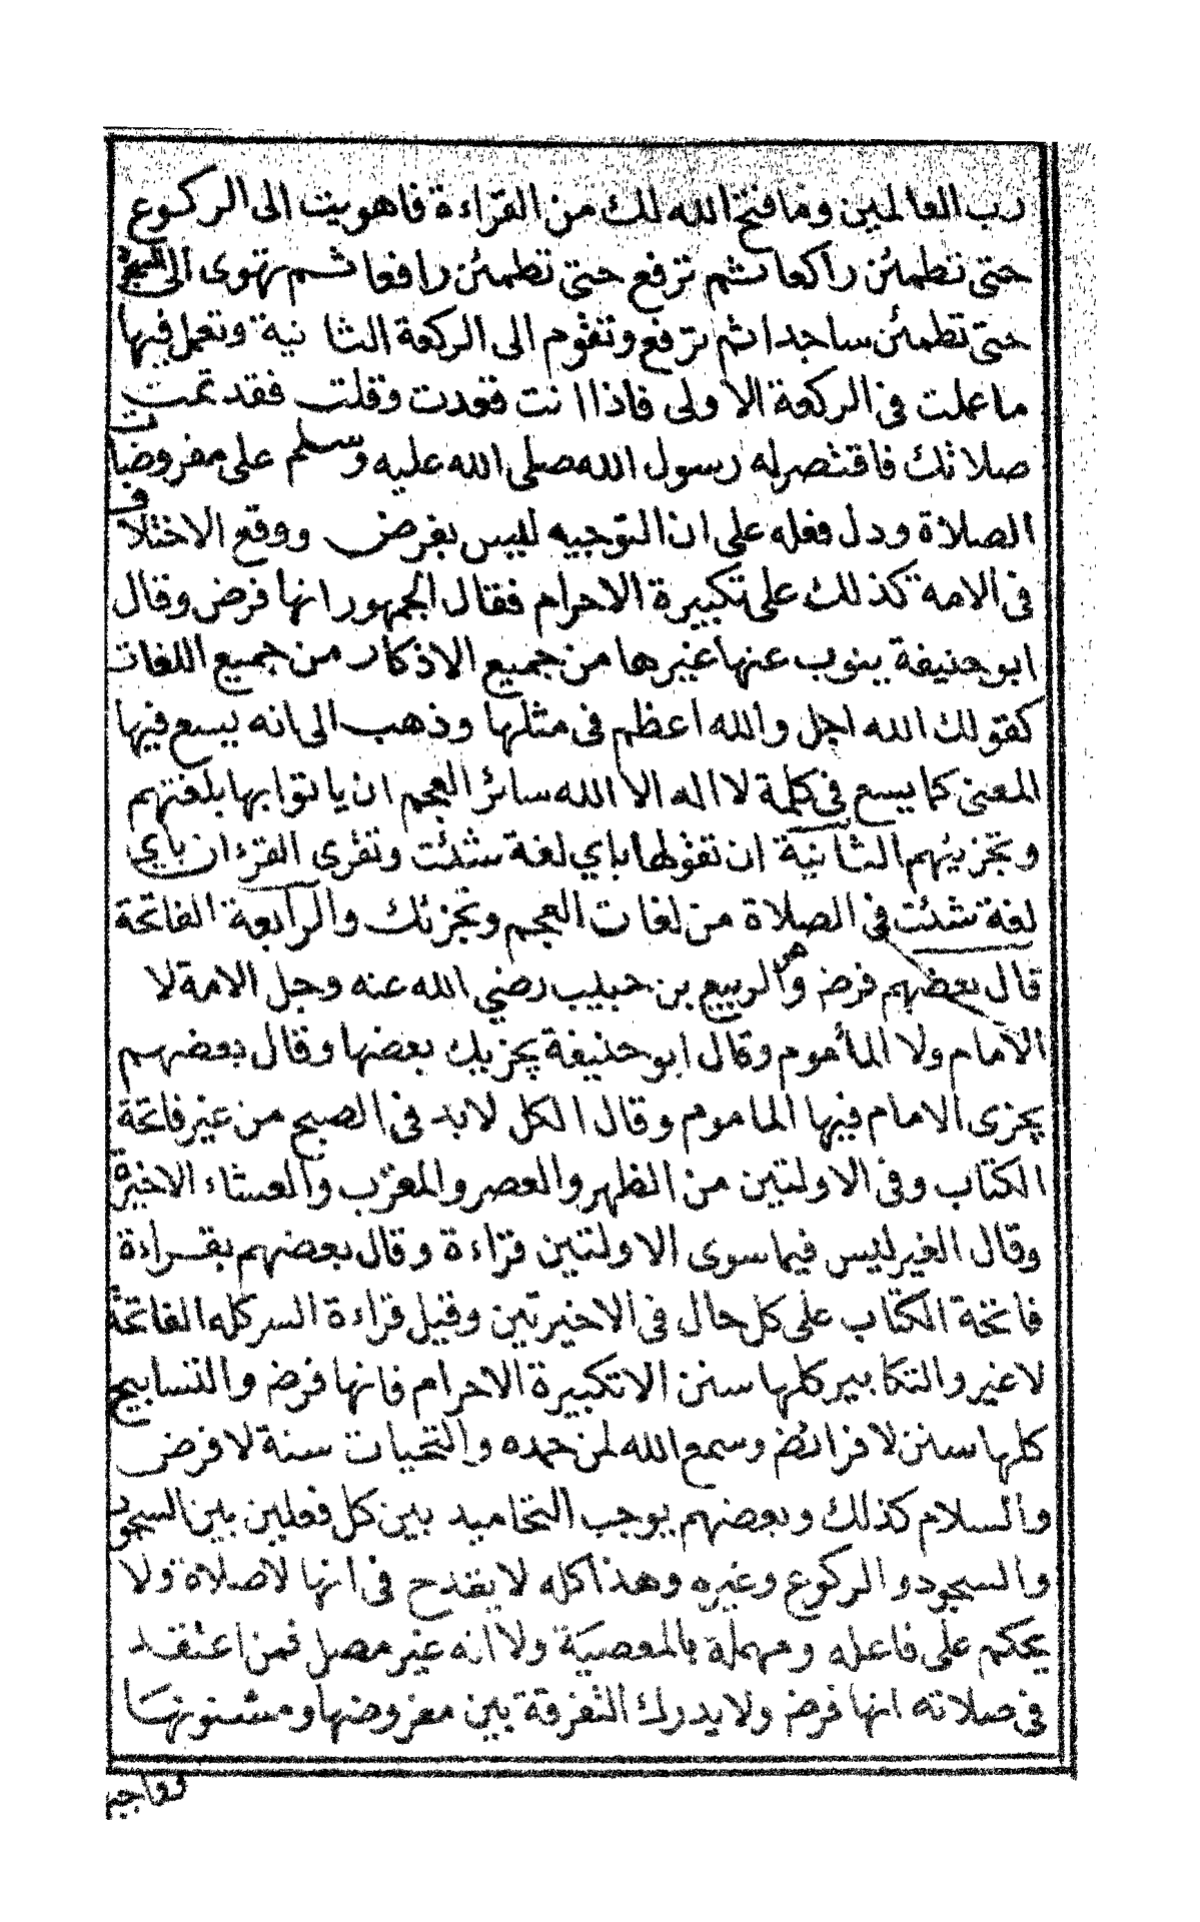 رب العالمين وما فتح الله لك من القراءة فاهويت الى الركوع
حتى تطمئن راكعا ثم ترفع حتى تطمئن رافعا ثم تهوى الى السجود
حتى تطمئن ساجدا ثم ترفع وتقوم الى الركعة الثا نية وتعمل فيها
ما عملت فى الركعة الاولى فاذا انت قعدت وقلت فقد تمت
صلاتك فاقتصر له رسول الله صلى الله عليه وسلم على مفروضات
الصلاة ودل فعله على ان التوجيه ليس بفرض ووقع الاختلاف
فى الامة كذلك على تكبيرة الاحرام فقال الجمهور انها فرض وقال
ابو حنيفة ينوب عنها غيرها من جميع الاذكار من جميع اللغات
كقولك الله اجل والله اعظم فى مثلها وذهب الى انه يسع فيها
المعنى كما يسع فى كلمة لا اله الا الله سائر العجم ان ياتوا بها بلغتهم
وتجزيهم الثانية ان تقولها باي لغة شئت وتقرى القرءان باي
لغة شئت فى الصلاة من لغات العجم وتجزئك والرابعة الفاتحة
قال بعضهم فرض وهو الربيع بن حبيب رضي الله عنه وجل الامة لا
الامام ولا المأموم وقال ابو حنيفة يجزيك بعضها وقال بعضهم
يجزى الامام فيها الماموم وقال الكل لابد فى الصبح من غير فاتحة
الكتاب وفى الاولتين من الظهر والعصر والمغرب والعشاء الاخيرة
وقال الغير ليس فيما سوى الاولتين قراءة وقال بعضهم بقراءة
فاتحة الكتاب على كل حال فى الاخيرتين وقيل قراءة السر كله الفاتحة
لا غير والتكابير كلها سنن الا تكبيرة الاحرام فانها فرض والتسابيح
كلها سنن لا فرائض وسمع الله لمن حمده والتحيات سنة لا فرض
والسلام كذلك وبعضهم يوجب التحاميد بين كل فعلين بين السجود
والسجود والركوع وغيره وهذا كله لا يقدح فى انها لا صلاة ولا
يحكم على فاعله ومهملة بالمعصية ولا انه غير مصل فمن اعتقد
فى صلاته انها فرض ولا يدرك التفرقة بين مفروضها ومسنونها